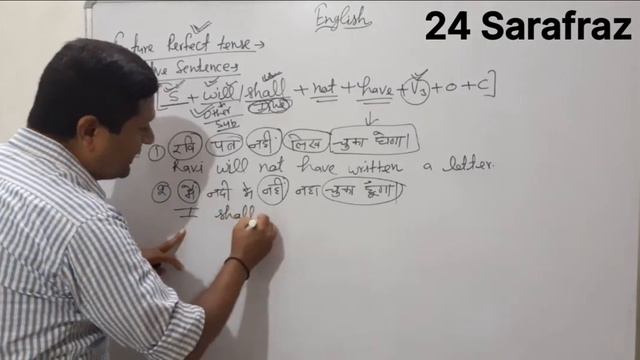 English
24 Sarafraz
Future Perfect tense→
Sentence→
[S + will/shall + not + have + V3 + O + C]
Other I/we
Sub
1) रवि पत्र नहीं लिख चुका होगा।
Ravi will not have written a letter.
2) मैं नदी में नहीं नहा चुका हूंगा।
I shall